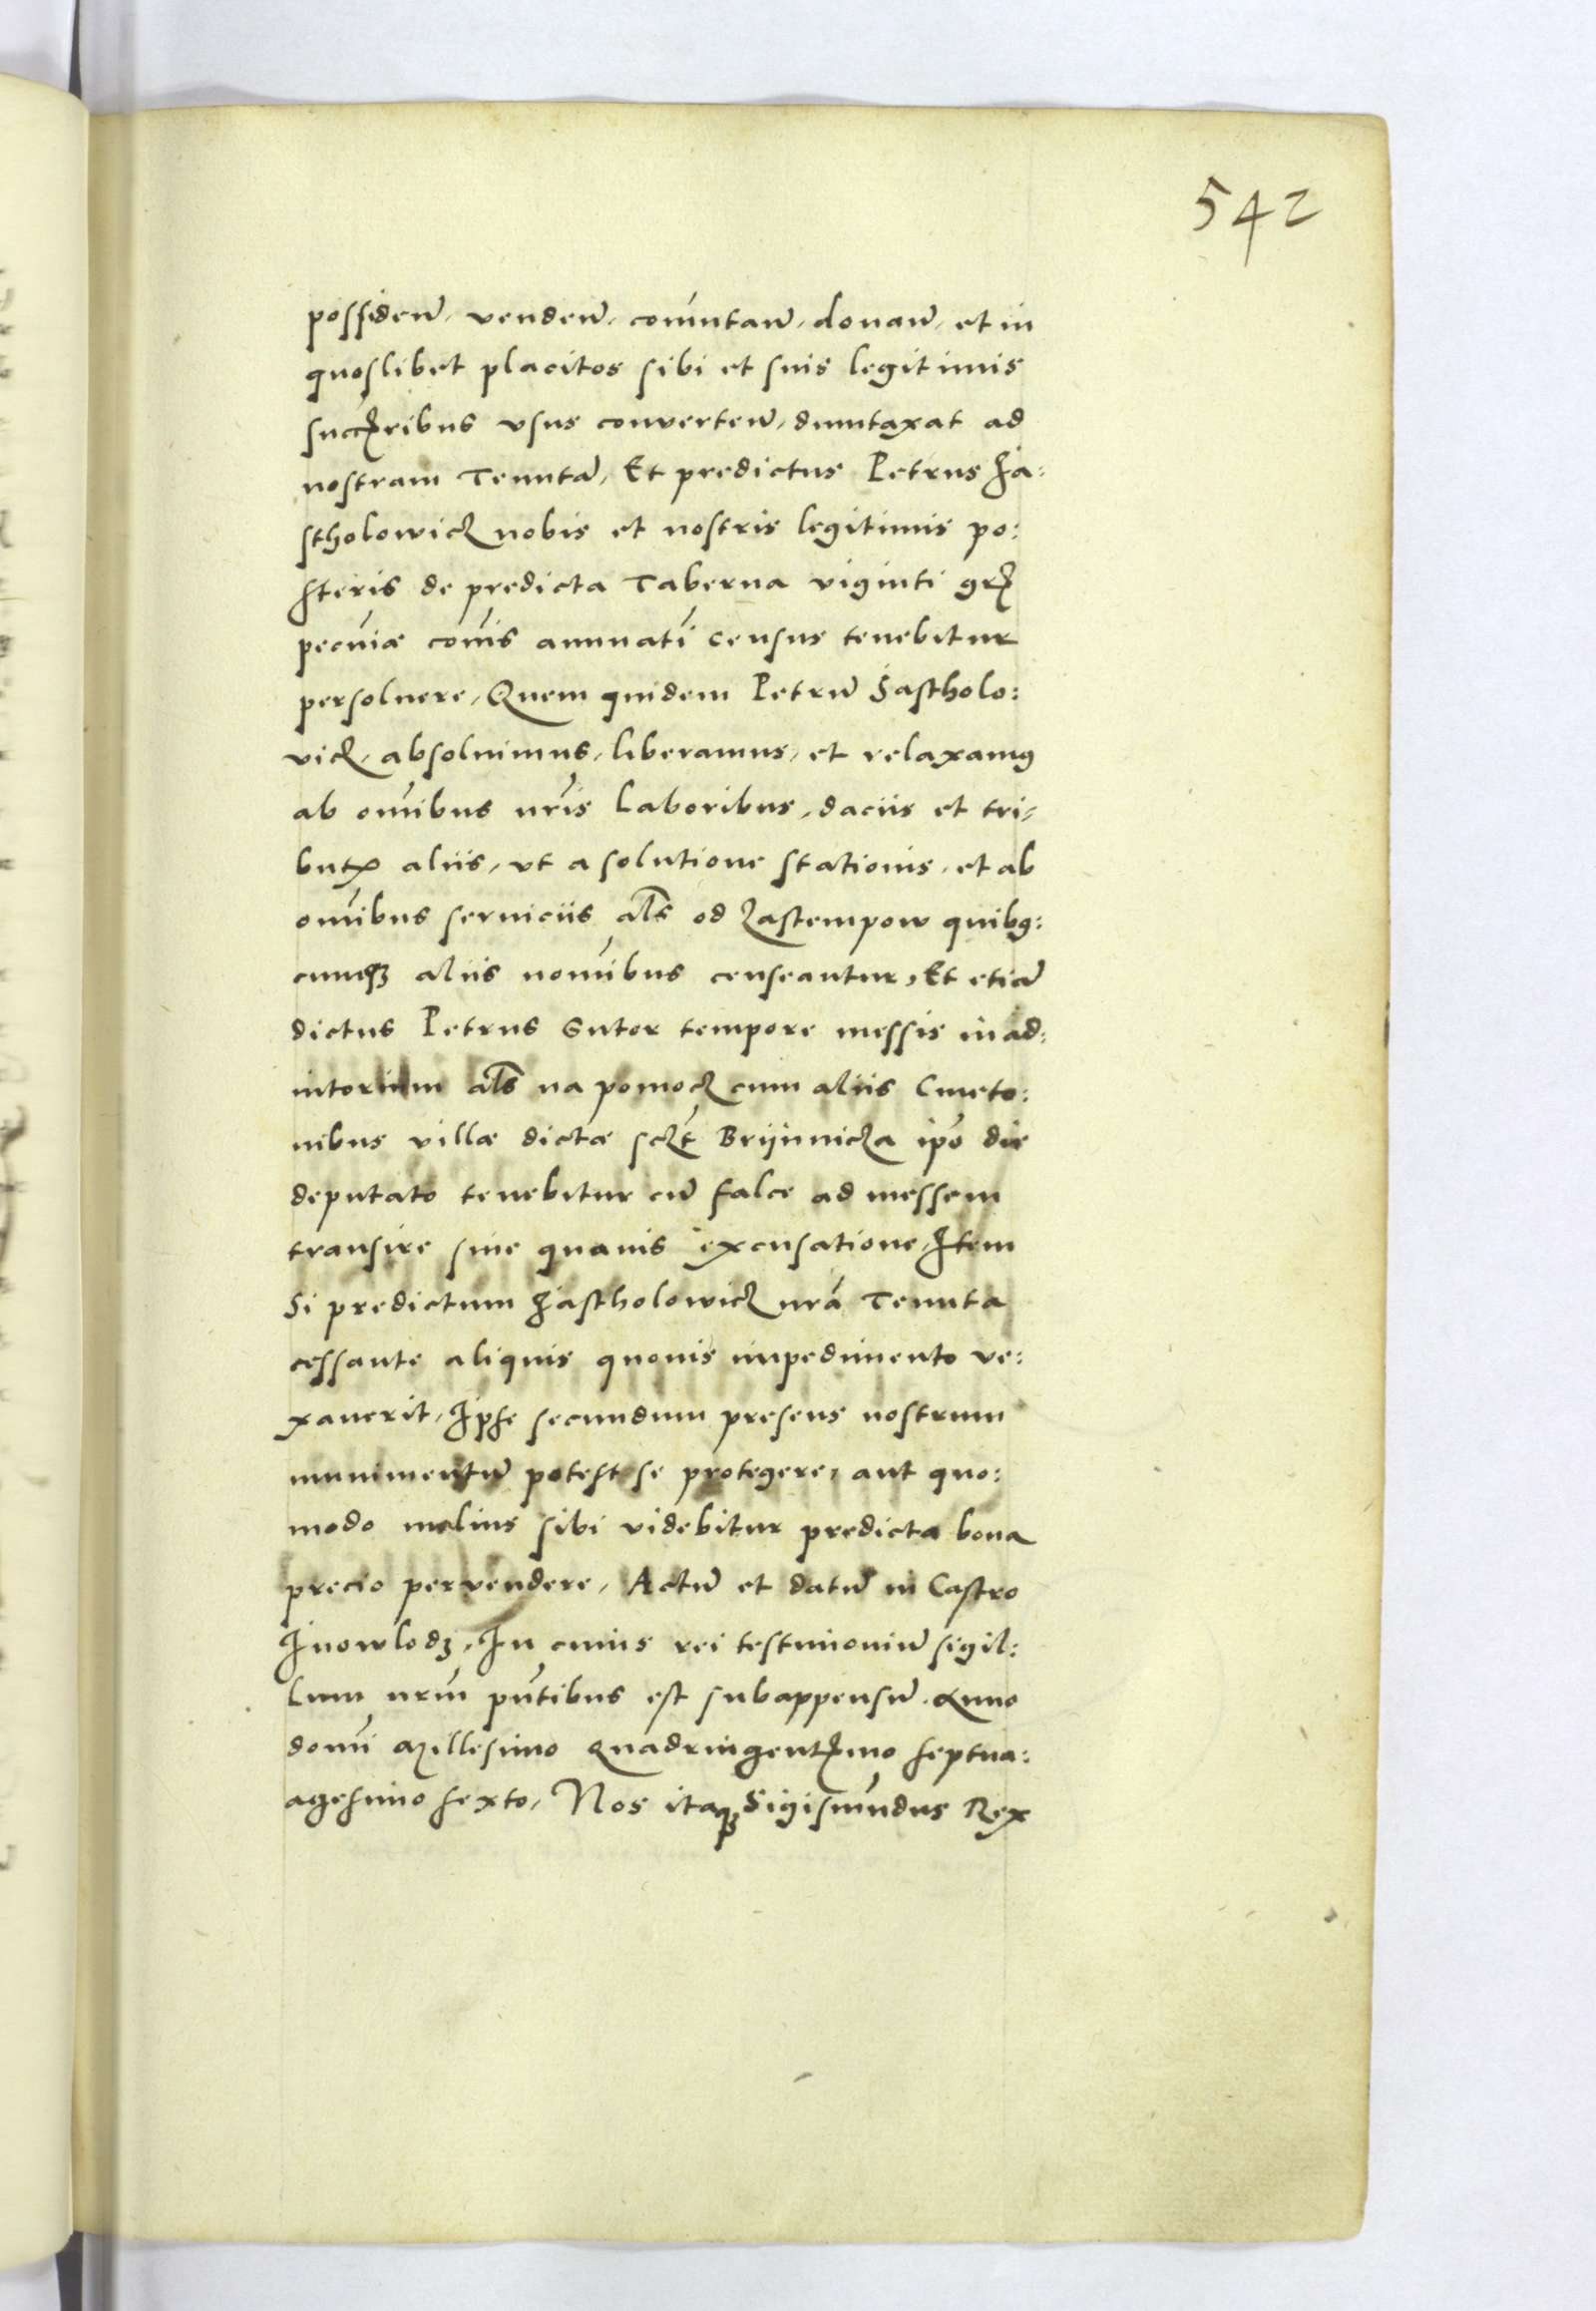 542
possiden̄, venden̄, com̄utan̄, donan̄, et in
quoslibet placitos sibi et suis legitimis
succȝribus vsus converten̄, dumtaxat ad
nostram Tenutā, Et predictus Petrus Ja:
stholowicz nobis et nostris legitimis po:
steris de predicta Taberna viginti grȝ
pecuniæ com̄is annuatī census tenebitur
persoluere, Quem quidem Petrū Jastholo:
vicz, absoluimus, liberamus, et relaxamꝰ
ab om̄ibus nr̄is Laboribus, daciis et tri-
butȝ aliis, vt a solutione stationis, et ab
om̄ibus seruiciis al̄s od Zastempow quibꝰ:
cumqꝫ aliis nom̄ibus censeantur, Et etiā
dictus Petrus Sutor tempore messis in ad:
iutorium al̄s na pomocz cum aliis Cmeto:
nibus villæ dictæ sczt̄ Brijnnicza ip̄o die
deputato tenebitur cū falce ad messem
transire sine quauis excusatione, Item
Si predictum Jastholowicz nr̄a Tenuta
cessante aliquis quouis impedimento ve:
xauerit, Ipse secundum presens nostrum
munimentū potest se protegere, aut quo:
modo melius sibi videbitur predicta bona
precio pervendere, Actū et datū in Castro
Inowlodȝ, In cuius rei testimoniū sigil:
lum nr̄m pn̄tibus est subappensū. Anno
domī Millesimo Quadringentȝmo septua:
agesimo sexto, Nos itaqꝫ Sigismūdus Rex